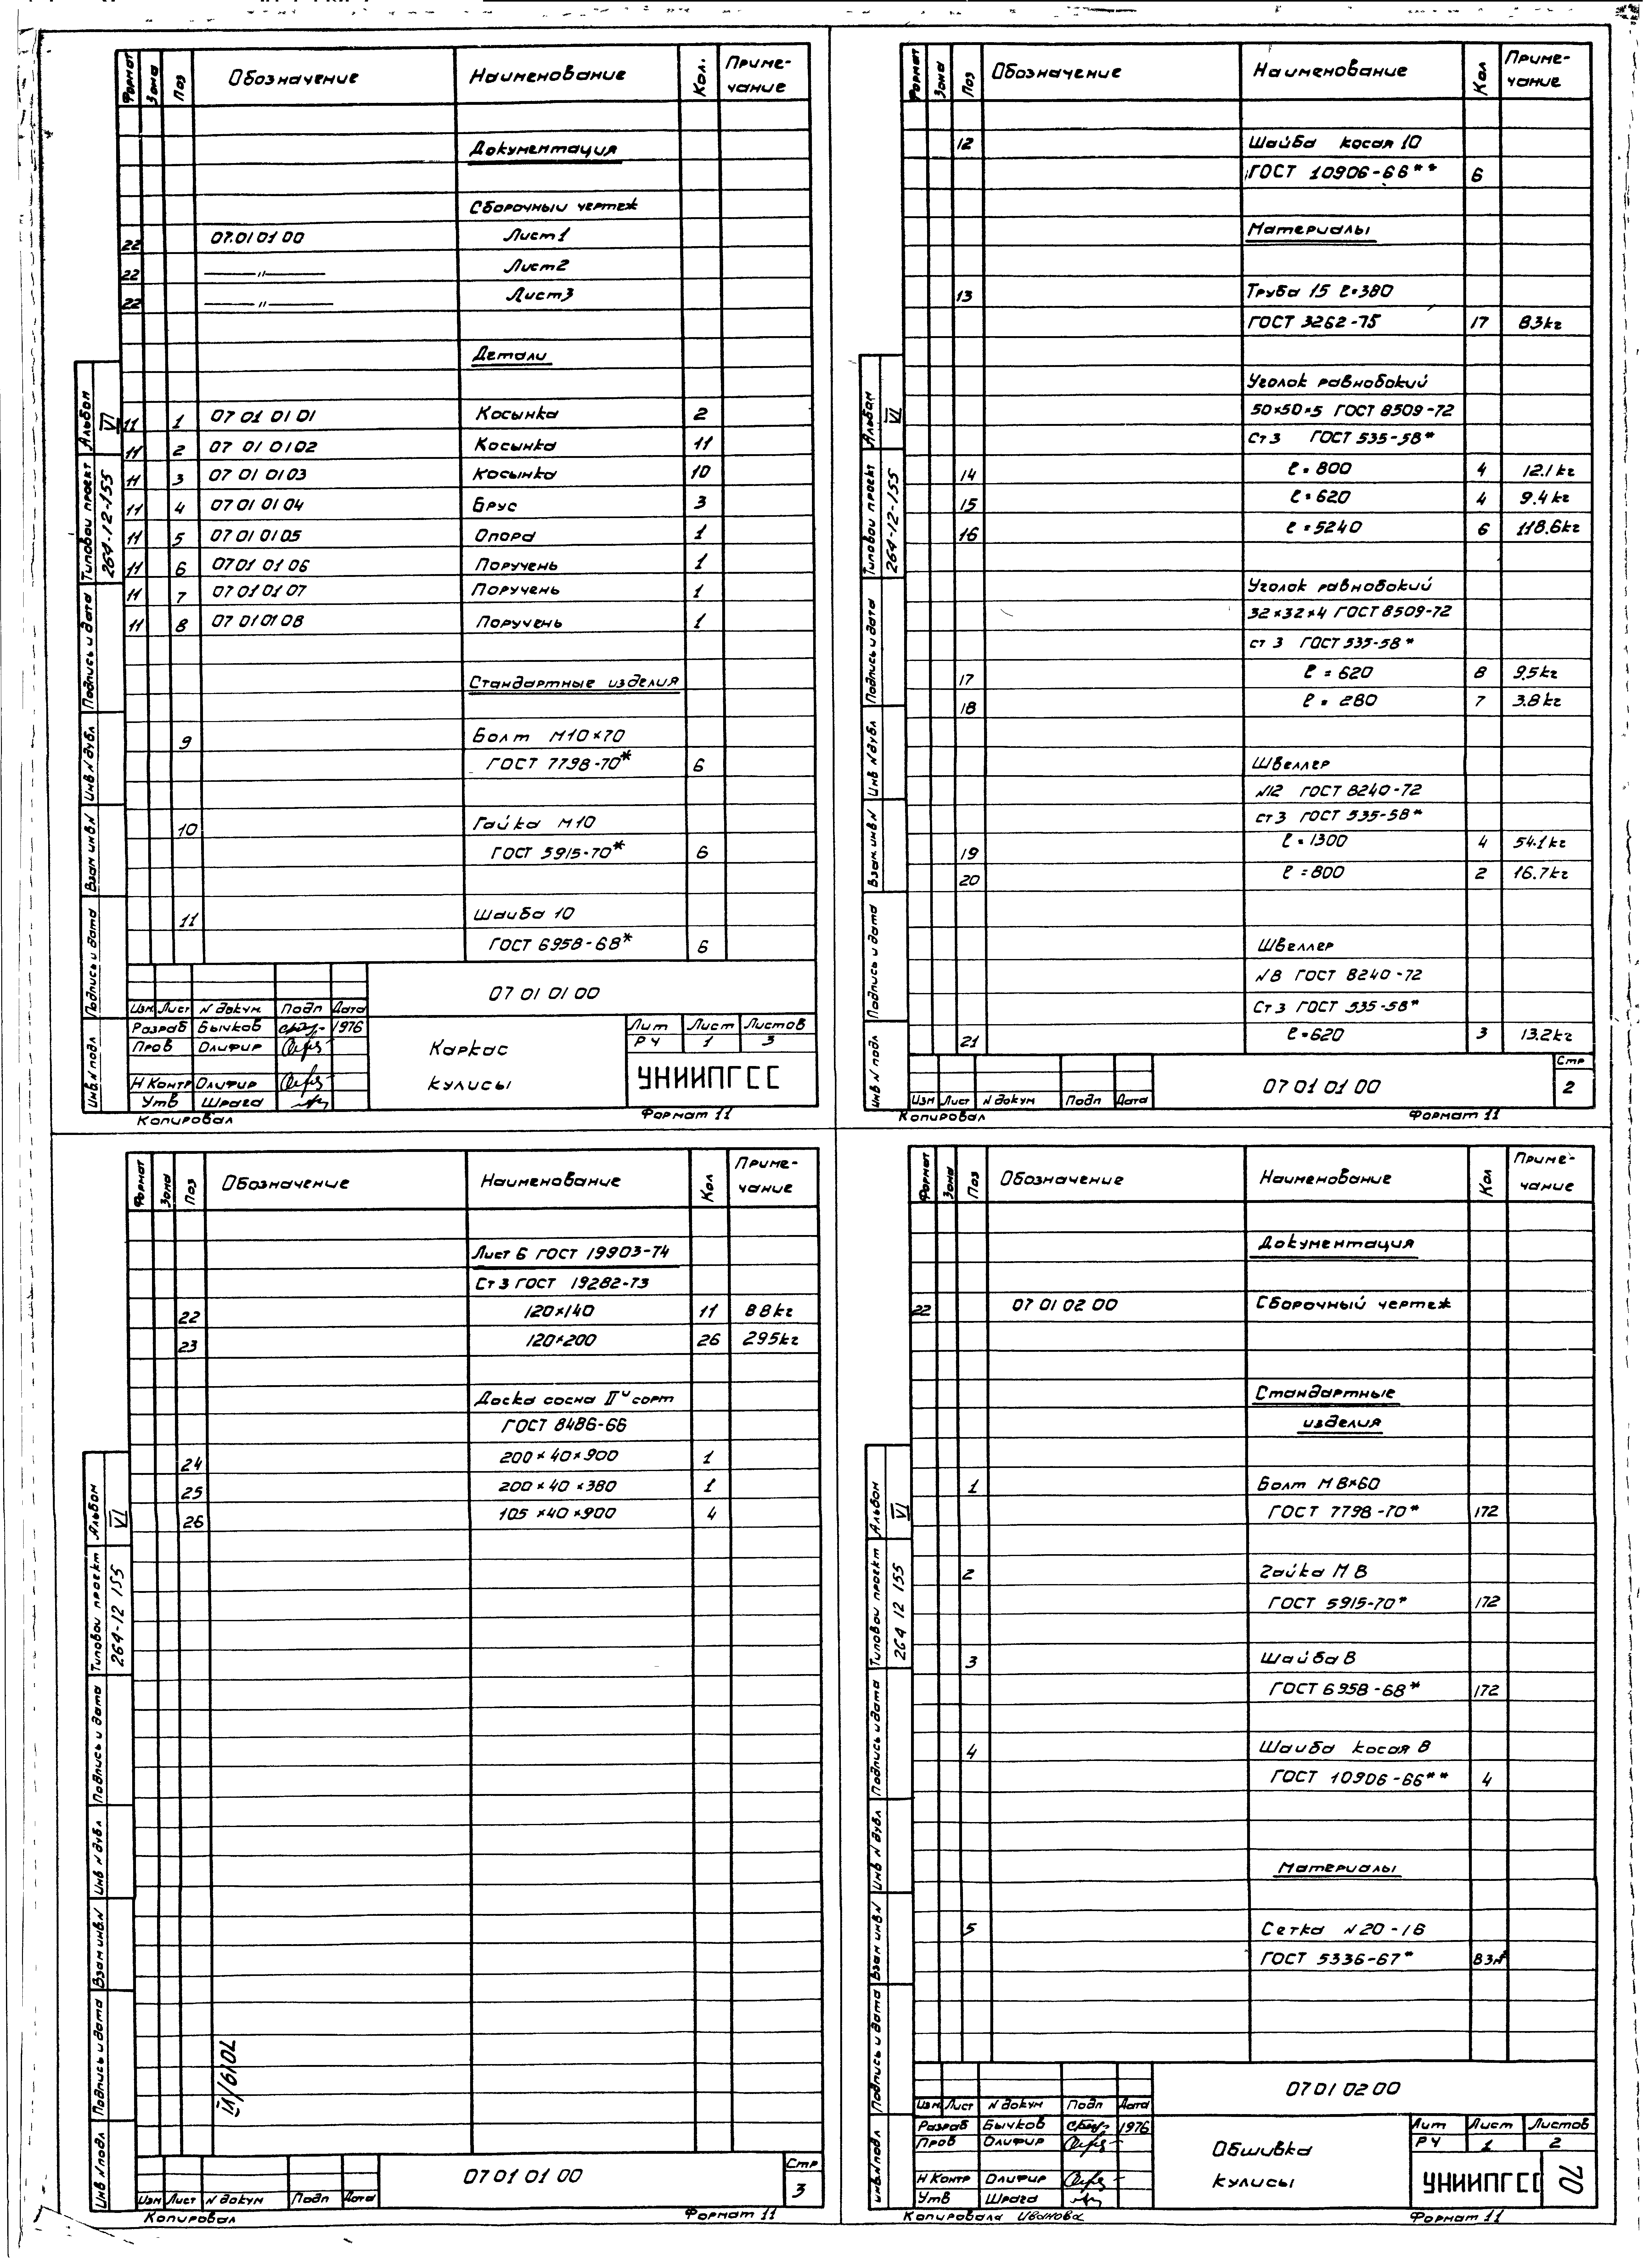 Формат Зона Поз Обозначение Наименование Кол. Приме-
чание
Документация
Сборочный чертеж
22 07.01 01 00 Лист 1
22 —— " —— Лист 2
22 —— " —— Лист 3
Детали
11 1 07 01 01 01 Косынка 2
11 2 07 01 01 02 Косынка 11
11 3 07 01 01 03 Косынка 10
11 4 07 01 01 04 Брус 3
11 5 07 01 01 05 Опора 1
11 6 07 01 01 06 Поручень 1
11 7 07 01 01 07 Поручень 1
11 8 07 01 01 08 Поручень 1
Стандартные изделия
9 Болт М10×70
ГОСТ 7798-70* 6
10 Гайка М10
ГОСТ 5915-70* 6
11 Шайба 10
ГОСТ 6958-68* 6
Альбом VI
Типовой проект 264-12-155
Подпись и дата
Инв N дубл
Взам инв.N
Подпись и дата
Инв.N подл
07 01 01 00
Изм Лист N докум. Подп Дата
Разраб Бычков 1976
Пров Олифир
Н Контр Олифир
Утв Шрага
Каркас
кулисы
Лит Лист Листов
РЧ 1 3
УНИИПГСС
Копировал Формат 11
Формат Зона Поз Обозначение Наименование Кол Приме-
чание
12 Шайба косая 10
ГОСТ 10906-66** 6
Материалы
13 Труба 15 ℓ=380
ГОСТ 3262-75 17 83кг
Уголок равнобокий
50×50×5 ГОСТ 8509-72
Ст 3 ГОСТ 535-58*
14 ℓ=800 4 12.1кг
15 ℓ=620 4 9.4кг
16 ℓ=5240 6 118.6кг
Уголок равнобокий
32×32×4 ГОСТ 8509-72
ст 3 ГОСТ 535-58*
17 ℓ=620 8 9.5кг
18 ℓ=280 7 3.8кг
Швеллер
N12 ГОСТ 8240-72
ст 3 ГОСТ 535-58*
19 ℓ=1300 4 54.1кг
20 ℓ=800 2 16.7кг
Швеллер
N8 ГОСТ 8240-72
Ст 3 ГОСТ 535-58*
21 ℓ=620 3 13.2кг
Альбом VI
Типовой проект 264-12-155
Подпись и дата
Инв N дубл
Взам инв N
Подпись и дата
Инв N подл
07 01 01 00
Стр
2
Изм Лист N докум Подп Дата
Копировал Формат 11
Формат Зона Поз Обозначение Наименование Кол Приме-
чание
Лист 6 ГОСТ 19903-74
Ст 3 ГОСТ 19282-73
22 120×140 11 88кг
23 120×200 26 295кг
Доска сосна II ч сорт
ГОСТ 8486-66
24 200×40×900 1
25 200×40×380 1
26 105×40×900 4
Альбом VI
Типовой проект 264-12 155
Подпись и дата
Инв N дубл
Взам инв.N
Подпись и дата
Инв N подл
7019/VI
07 01 01 00
Стр
3
Изм Лист N докум Подп Дата
Копировал Формат 11
Формат Зона Поз Обозначение Наименование Кол Приме-
чание
Документация
22 07 01 02 00 Сборочный чертеж
Стандартные
изделия
1 Болт М8×60
ГОСТ 7798-70* 172
2 Гайка М8
ГОСТ 5915-70* 172
3 Шайба 8
ГОСТ 6958-68* 172
4 Шайба косая 8
ГОСТ 10906-66** 4
Материалы
5 Сетка N20-1.6
ГОСТ 5336-67* 83м²
Альбом VI
Типовой проект 264 12 155
Подпись и дата
Инв N дубл
Взам инв.N
Подпись и дата
Инв.N подл
07 01 02 00
Изм Лист N докум Подп Дата
Разраб Бычков 1976
Пров Олифир
Н Контр Олифир
Утв Шрага
Обшивка
кулисы
Лит Лист Листов
РЧ 1 2
УНИИПГСС 70
Копировала Иванова Формат 11